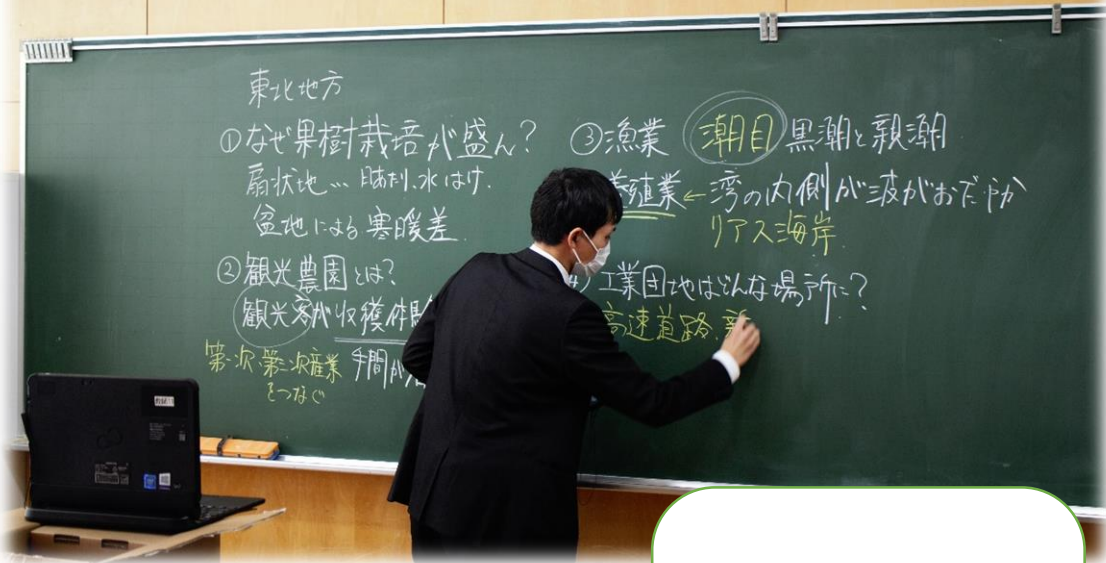 東北地方
①なぜ果樹栽培が盛ん?
扇状地…日あたり、水はけ、
盆地による寒暖差
②観光農園とは?
観光客が収穫体
第一次、第三次産業
をつなぐ
手間が
③漁業 潮目 黒潮と親潮
養殖業←湾の内側が波がおだやか
リアス海岸
④ 工業団地はどんな場所に?
高速道路、新